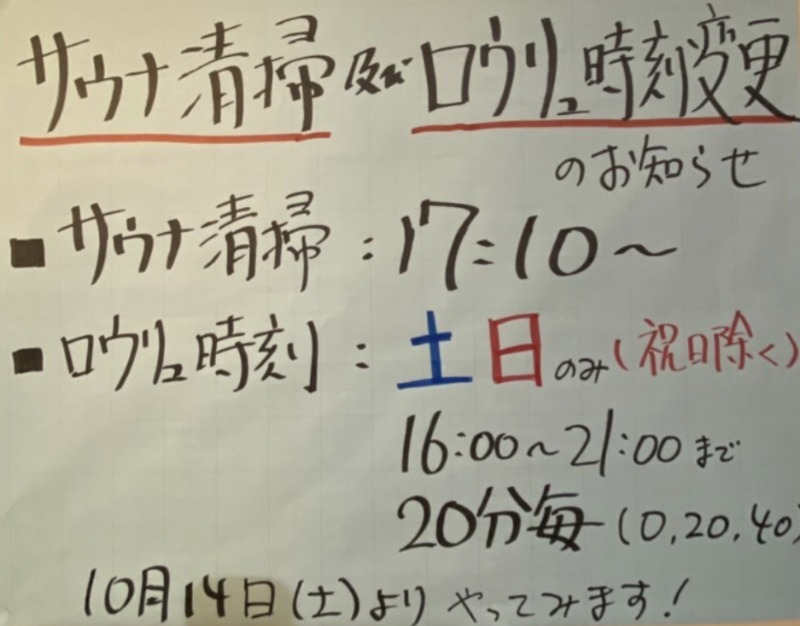 サウナ清掃及びロウリュ時刻変更
のお知らせ
■ サウナ清掃：17：10～
■ ロウリュ時刻：土日のみ(祝日除く)
16:00～21:00まで
20分毎(0,20,40)
10月14日(土)よりやってみます！